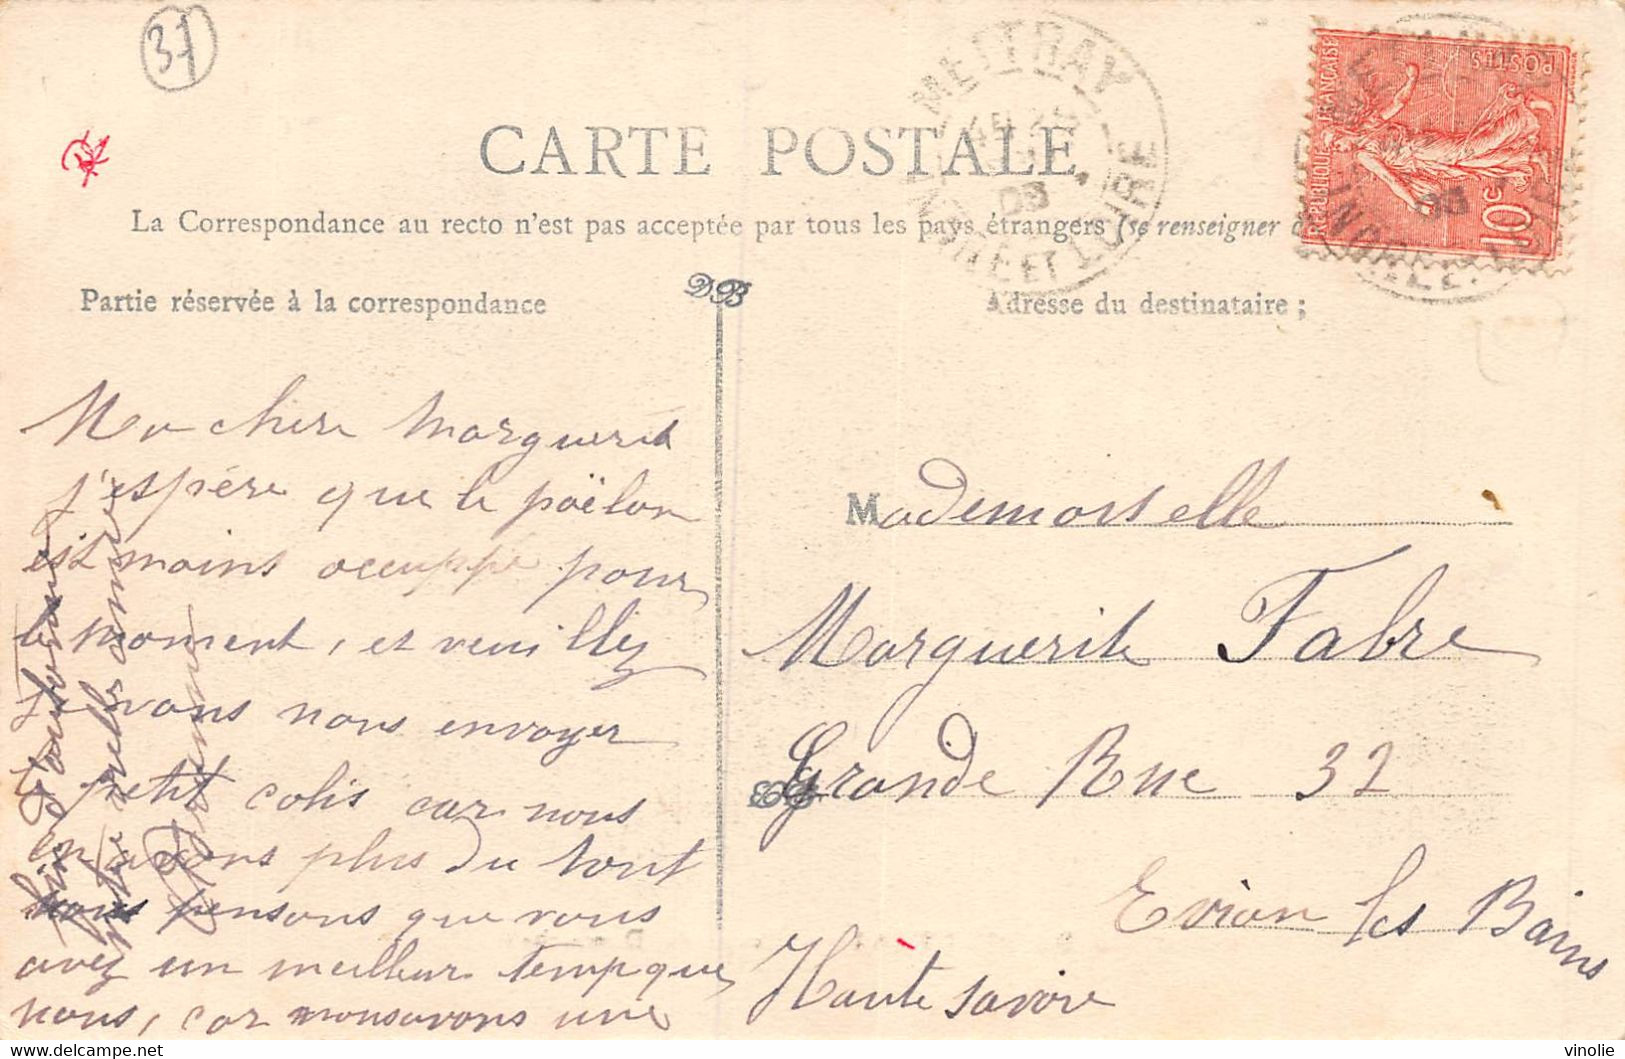 37
MELTRAY
INDRE ET LOIRE
08
REPUBLIQUE FRANÇAISE
POSTES
10c
CARTE POSTALE
La Correspondance au recto n'est pas acceptée par tous les pays étrangers (se renseigner
DB
Partie réservée à la correspondance
Ma chere Marguerite
j'espére que le poëlon
est moins occuppé pour
le moment, et veuillez
je vous nous envoyer
petit colis car nous
en avons plus du tout
nous pensons que vous
avez un meilleur temp que
nous, car nous avons une
Adresse du destinataire ;
Mademoiselle
Marguerite Fabre
Grande Rue 32
Evian les Bains
Haute Savoie
vinolie